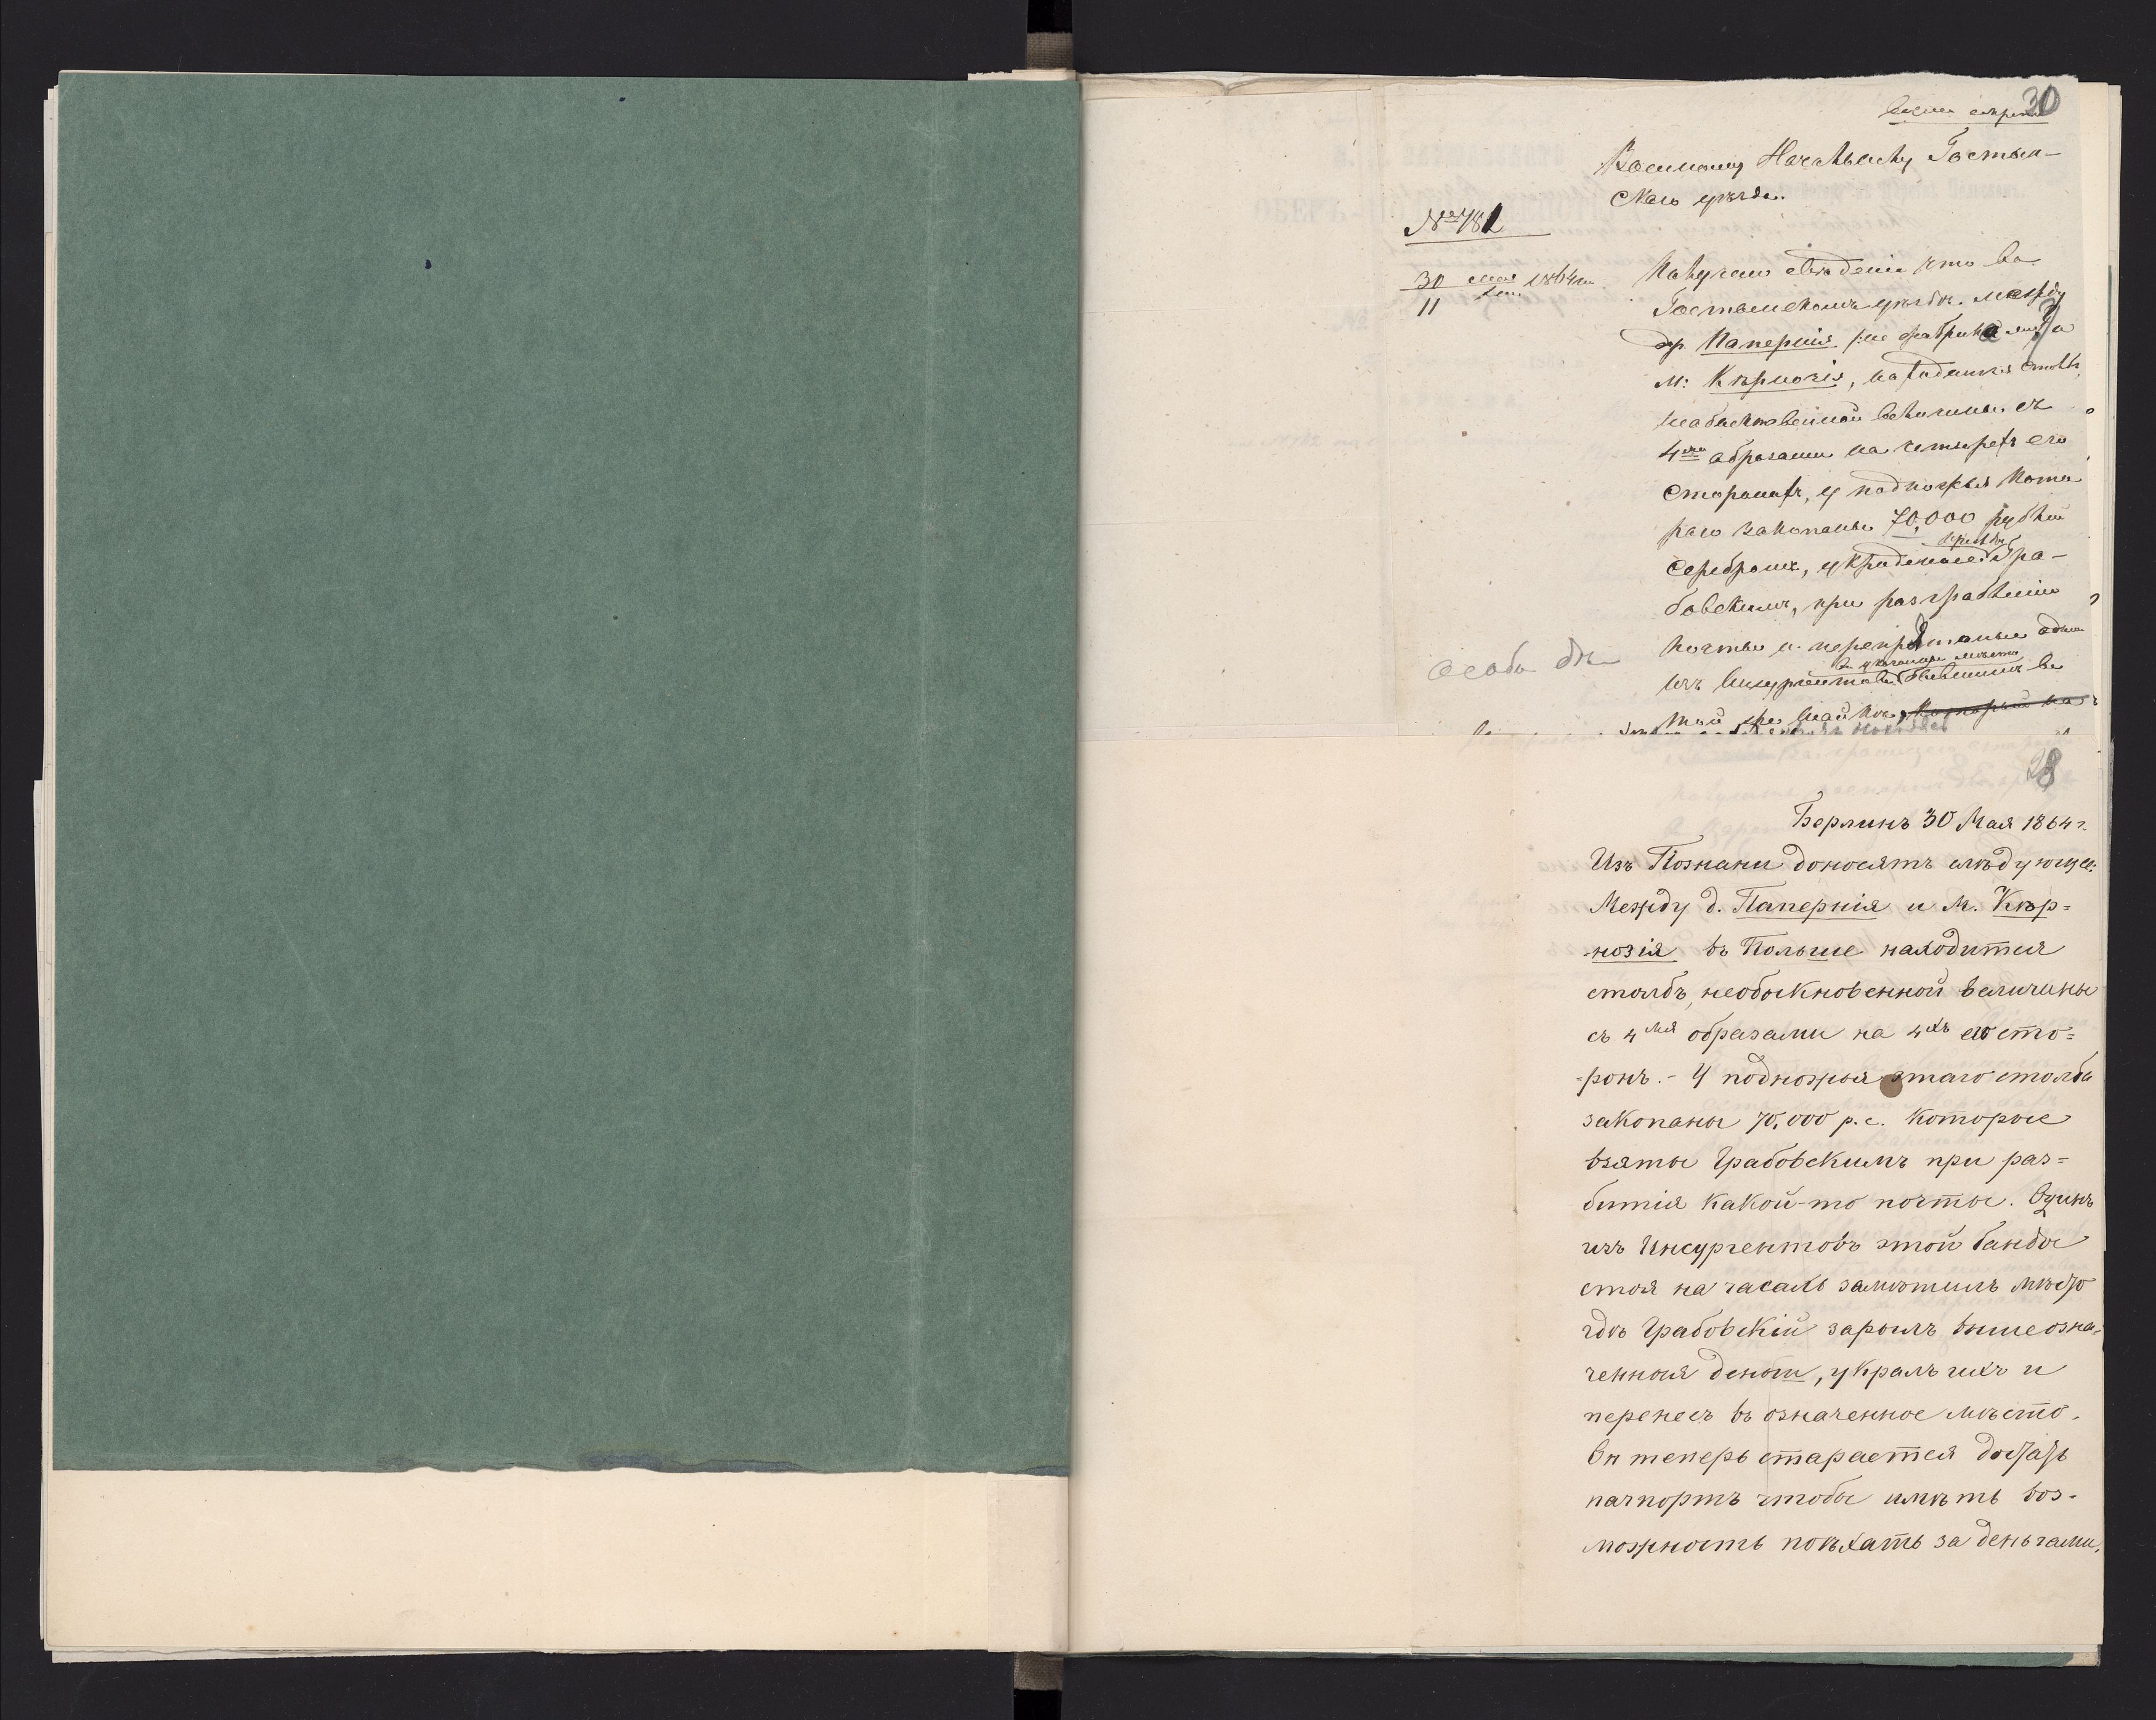 30
Военному Начальнику Гостын-
скаго уѣзда.
№ 781
30 мая 1864 г.
11
Получено свѣденіе что въ
Гостынскомъ уѣздѣ. между
др. Паперня
м: Кѣрнозія, находится столбъ
необыкновенной величины съ
4мя образами на четырехъ его
сторонахъ, у подножья кото
раго закопаны 70,000 рублей
серебромъ, Гра-
бовскимъ, при разграбленіи
почты и перепрятаные однимъ
изъ инсургентовъ бывшимъ въ
той же шайкѣ, который
28
Берлинъ 30 Мая 1864 г.
Изъ Познани доносятъ слѣдующее:
Между д. Паперня и М. Кѣр=
-нозія въ Польше находится
столбъ, необыкновенной величины
съ 4мя образами на 4хъ его сто=
=ронъ. - У подножья этаго столба
закопаны 70,000 р. с. которые
взяты Грабовскимъ при раз=
битія какой-то почты. Одинъ
изъ Инсургентовъ этой банды
стоя на часахъ замѣтилъ мѣсто
гдѣ Грабовскій зарылъ вышеозна-
ченныя деньги, укралъ ихъ и
перенесъ въ означенное мѣсто.
Он теперь старается достать
пачпортъ чтобы имѣть воз-
можность поѣхать за деньгами.